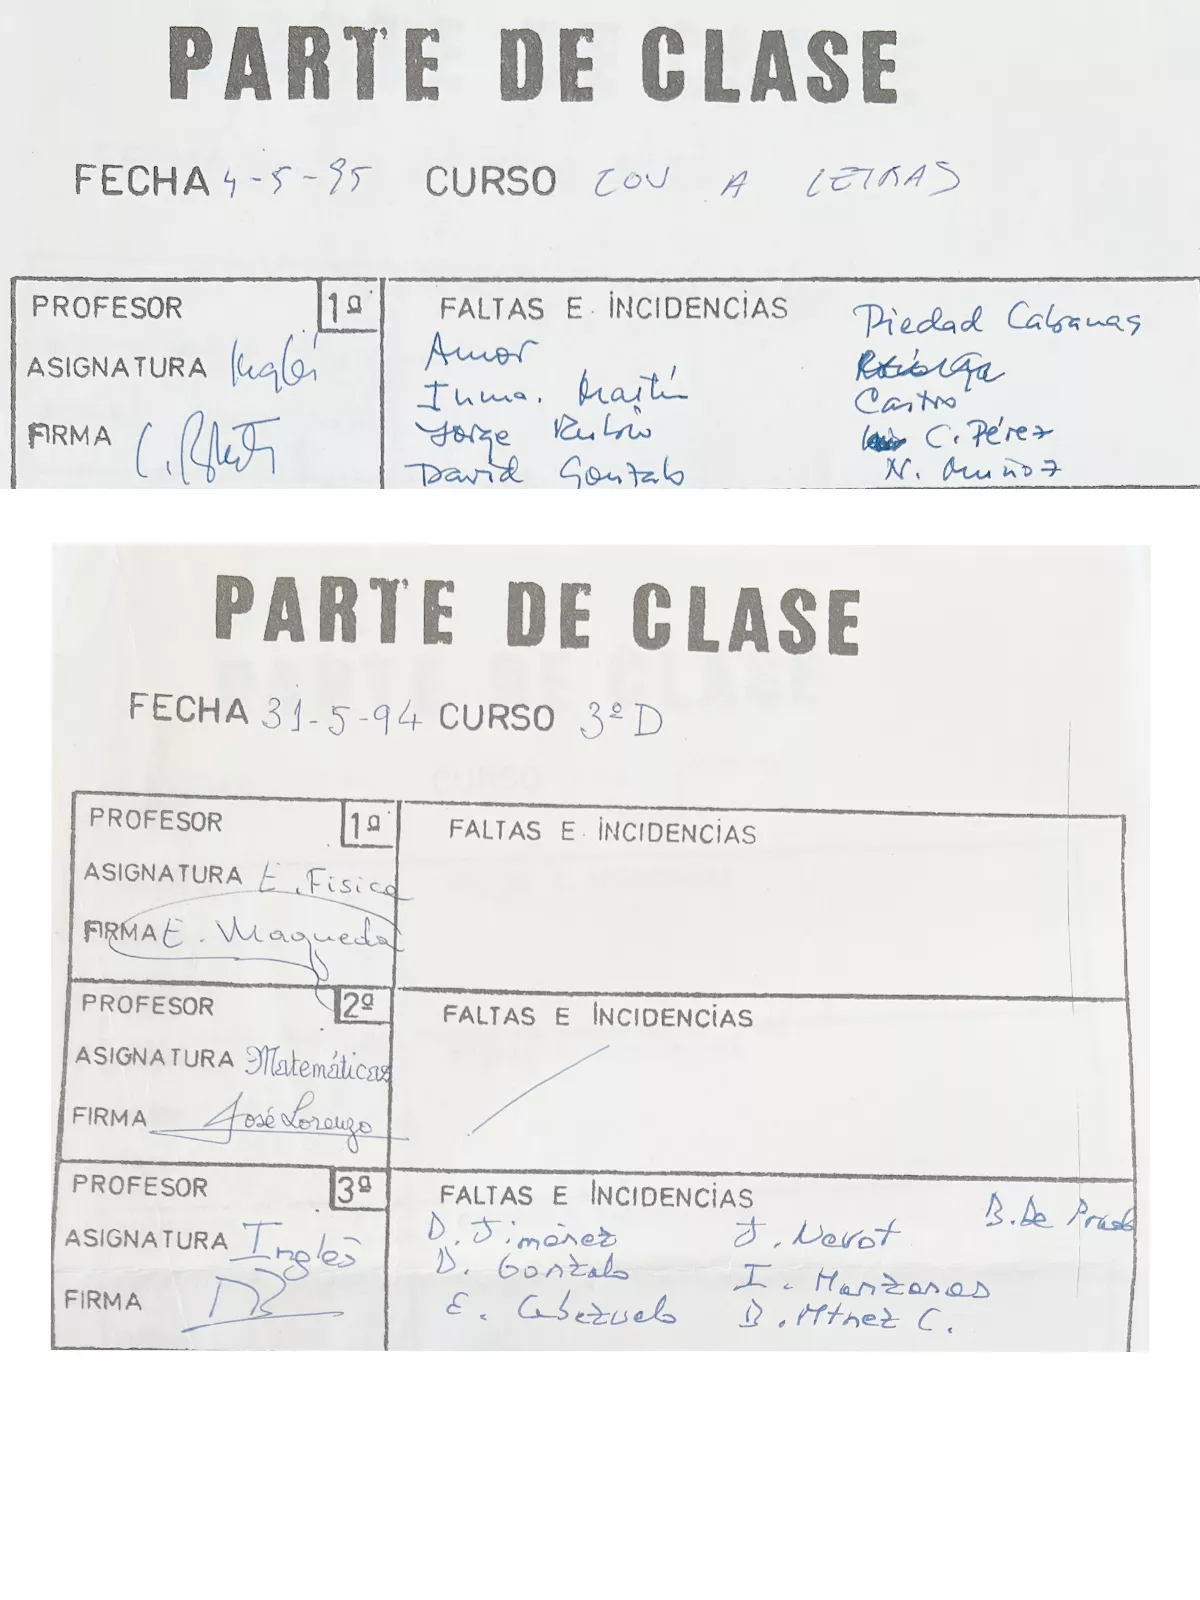 PARTE DE CLASE
FECHA 4-5-95 CURSO COU A LETRAS
PROFESOR 1ª
ASIGNATURA Inglés
FIRMA
FALTAS E INCIDENCIAS
Amor
Inma. Martín
Jorge Rubio
David Gonzalo
Piedad Cabanas
Castro
C. Pérez
N. Muñoz
PARTE DE CLASE
FECHA 31-5-94 CURSO 3º D
PROFESOR 1ª
ASIGNATURA E. Física
FIRMA E. Maqueda
FALTAS E INCIDENCIAS
PROFESOR 2ª
ASIGNATURA Matemáticas
FIRMA José Lorenzo
FALTAS E INCIDENCIAS
PROFESOR 3ª
ASIGNATURA Inglés
FIRMA
FALTAS E INCIDENCIAS
D. Jiménez
D. Gonzalo
E. Cabezuelo
J. Nevot
I. Manzanas
B. Mtnez C.
B. De Prado